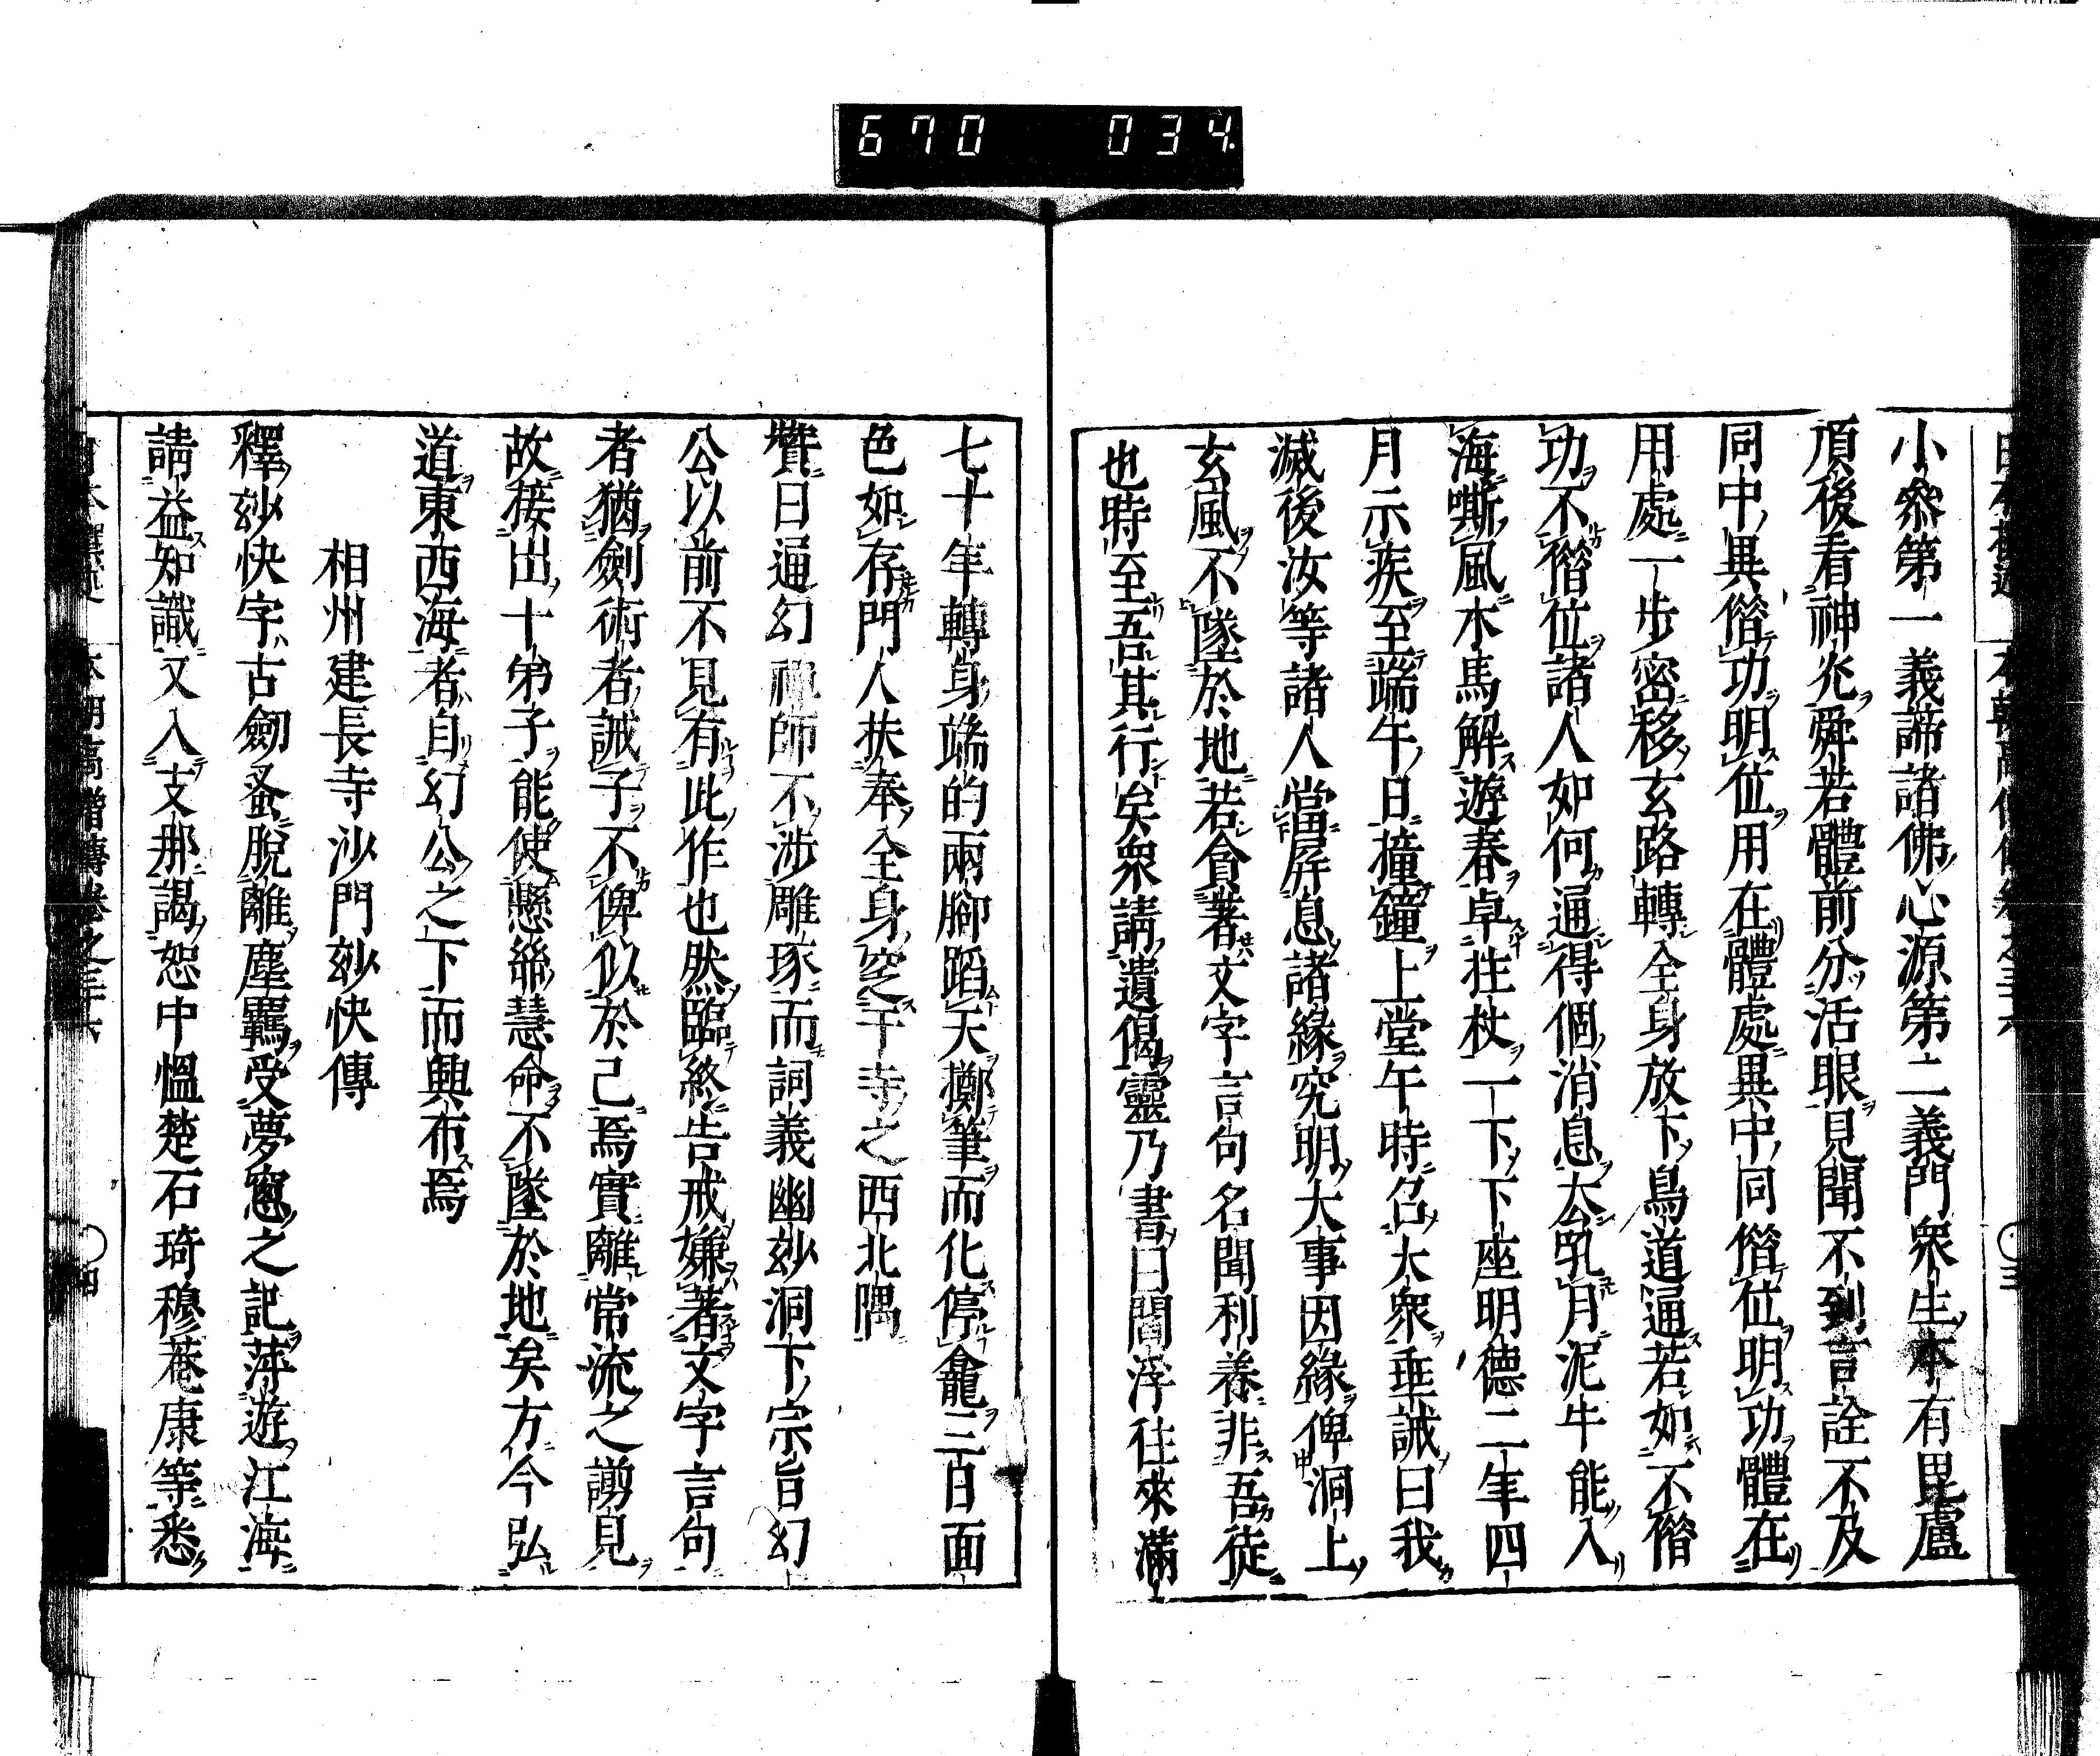 670 034
小參第一義諦諸佛心源第二義門衆生本有毘盧
頂後看神光舜若體前分活眼見聞不到言詮不及
同中異偕功明位用在體處異中同偕位明功體在
用處一步密移玄路轉全身放下鳥道通若如不偕
功不偕位諸人如何通得個消息太乳月泥牛能入
海嘶風木馬解遊春卓拄杖一下下座明德二年四
月示疾至端午日撞鐘上堂午時召大衆垂誡曰我
滅後汝等諸人當屏息諸緣究明大事因緣俾洞上
玄風不墜於地若貪著文字言句名聞利養非吾徒
也時至吾其行矣衆請遺偈靈乃書曰閻浮往來滿
七十年轉身端的兩腳蹈天擲筆而化停龕三日面
色如存門人扶奉全身窆于寺之西北隅
贊曰通幻禪師不涉雕琢而詞義幽玅洞下宗旨幻
公以前不見有此作也然臨終告戒嫌著文字言句
者猶劍術者誡子不俾似於己焉實離常流之謭見
故接出十弟子能使懸絲慧命不墜於地矣方今弘
道東西海者自幻公之下而興布焉
相州建長寺沙門玅快傳
釋玅快字古劒蚤脫離塵羈受夢窻之記莂遊江海
請益知識又入支那謁恕中慍楚石琦穆菴康等悉